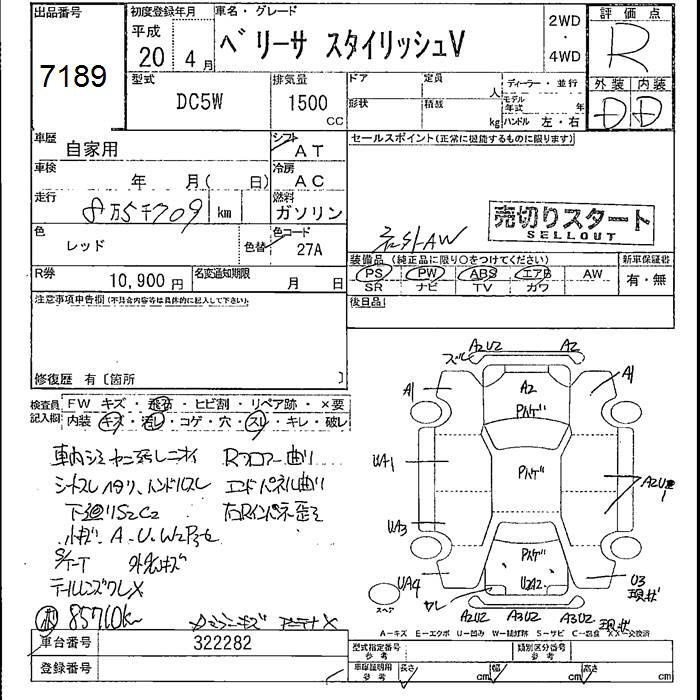 出品番号
7189
初度登録年月
平成
20 4月
車名・グレード
ベリーサ スタイリッシュV
2WD
・
4WD
評価点
R
外装 内装
D D
型式
DC5W
排気量
1500
cc
ドア
定員
人
形状
積載
kg
ディーラー・並行
モデル年式 年
ハンドル 左・右
車歴
自家用
シフト
AT
車検
年 月( 日)
冷房
AC
走行
8万5千709 km
燃料
ガソリン
色
レッド
色替
色コード
27A
R券
10,900円
名変通知期限
月 日
セールスポイント(正常に機能するものに限ります)
売切りスタート
SELLOUT
社外AW
装備品(純正品に限り○をつけてください)
新車保証書
PS PW ABS エアB AW
有・無
SR ナビ TV カワ
後日品
注意事項申告欄(不具合内容等は具体的に記入して下さい)
修復歴 有〔箇所 〕
検査員記入欄
FW キズ・飛石・ヒビ割・リペア跡・×要
内装 キズ・汚レ・コゲ・穴・スレ・キレ・破レ
Rフロアー曲り
エンドパネル曲り
下廻りS2C2
小キズ A・U・W2
外
テールレンズワレX
85710km
アンテナX
A1
UA1
UA3
UA4
A2U2
A2
A2
Pハゲ
A1
Pハゲ
A2U2
Pハゲ
U2A2
U3
ワレ
スペア
A2U2 A3U2 A3U2
A-キズ E-エクボ U-凹み W-補修跡 S-サビ C-腐食 XX-交換済
車台番号
322282
登録番号
型式指定番号
参考
類別区分番号
参考
車庫証明用
参考
長さ cm
幅 cm
高さ cm